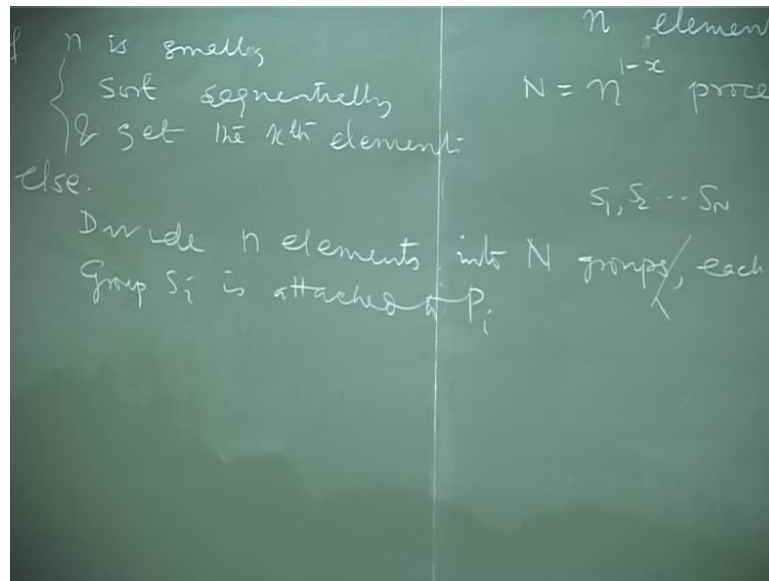 f n is small,
sort sequentially
& get the kth element.
else.
Divide n elements into N groups, each
Group Si is attached to Pi
n element
N = n^{1-x} proce
S1, S2 ... SN